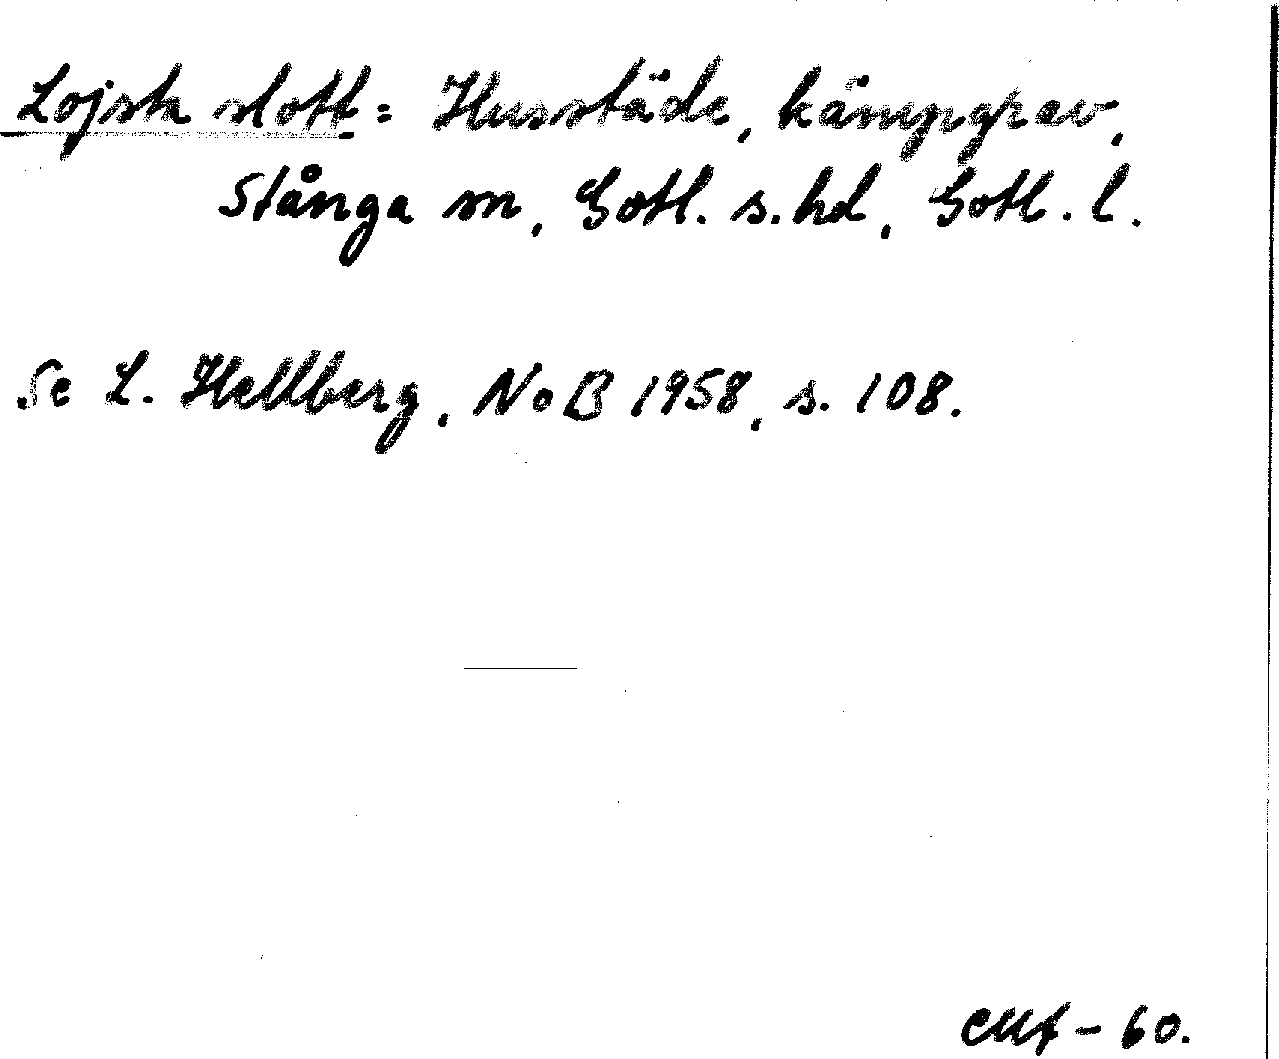 Lojsta slott: Husstäde, kämpgrav,
Stånga sn, Gotl. s. hd, Gotl. l.
Se L. Hellberg, NoB 1958, s. 108.
- 60.